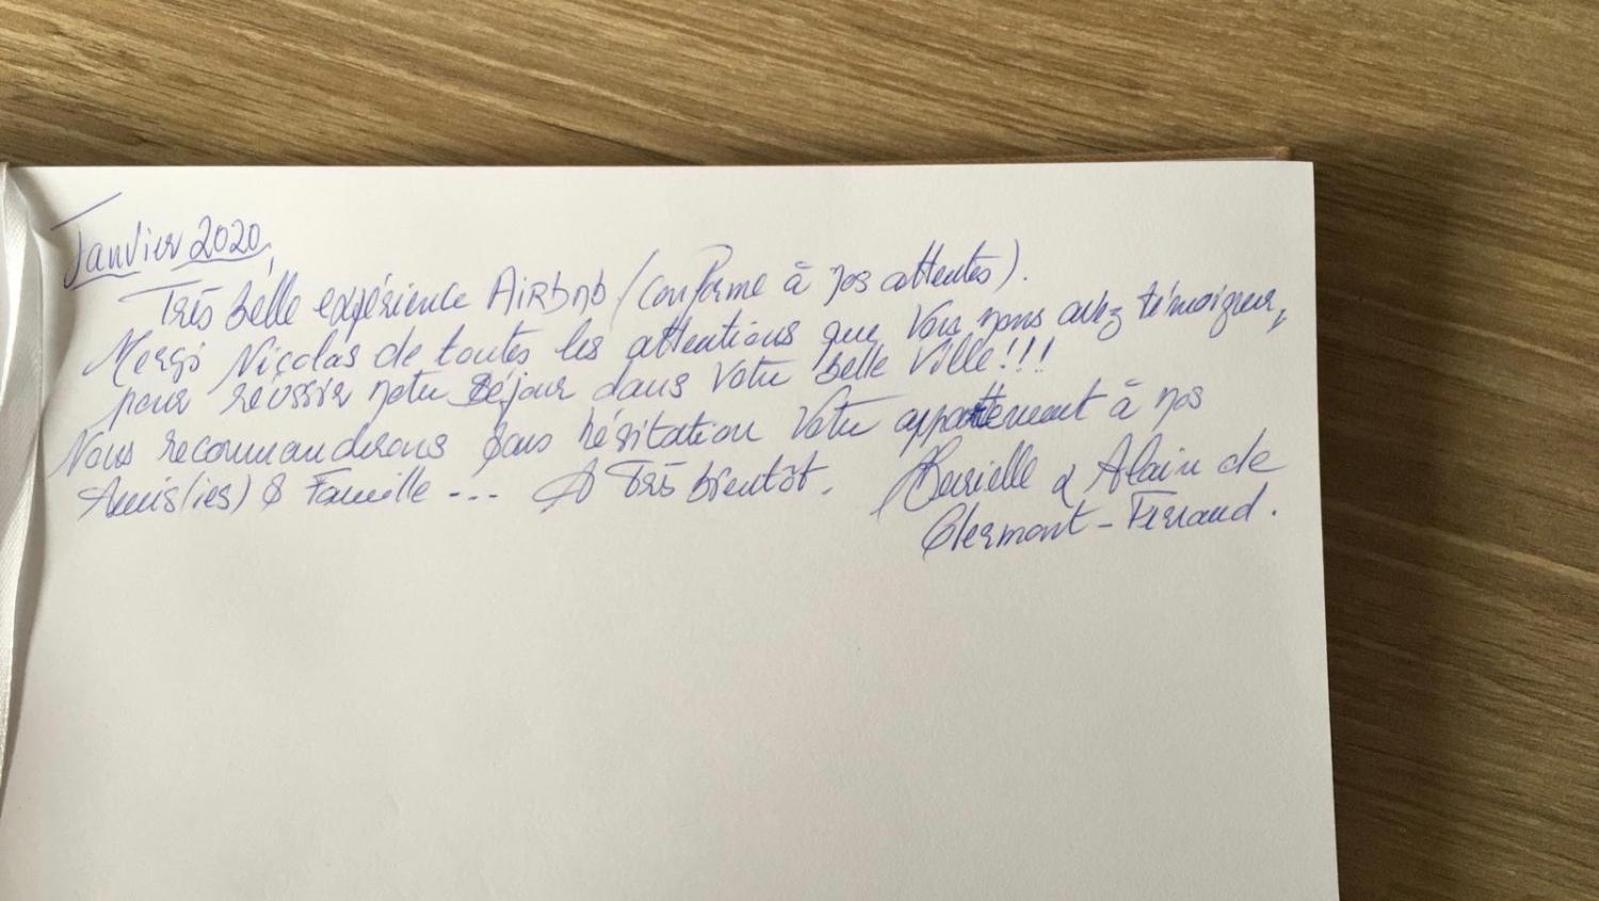 Janvier 2020,
Très belle expérience AiRbnb (conforme à nos attentes).
Merci Nicolas de toutes les attentions que Vous nous avez témoigner,
pour réussir notre séjour dans Votre belle Ville!!!
Nous recommanderons sans hésitation Votre appartement à nos
Amis(ies) & Famille --- A Très bientôt.
& Alain de
Clermont-Ferrand.